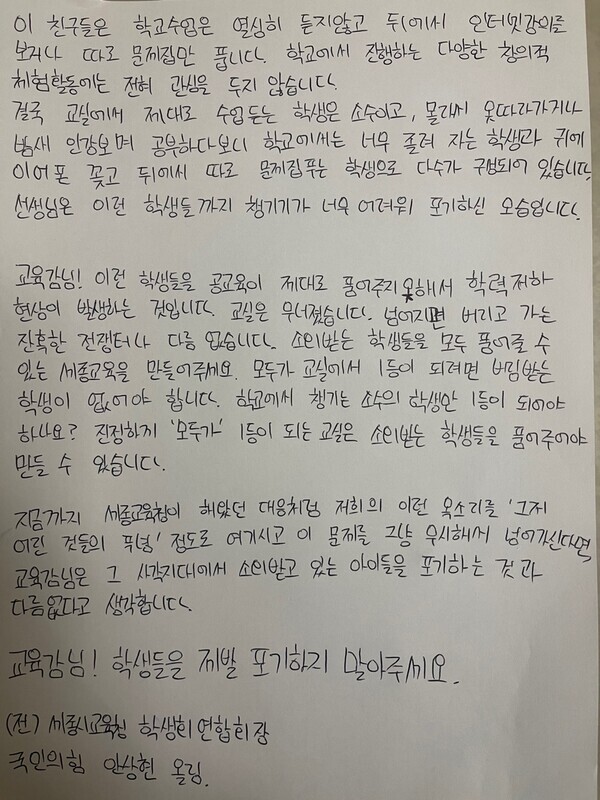 이 친구들은 학교수업은 열심히 듣지않고 뒤에서 인터넷강의를
보거나 따로 문제집만 풉니다. 학교에서 진행하는 다양한 창의적
체험활동에는 전혀 관심을 두지 않습니다.
결국 교실에서 제대로 수업 듣는 학생은 소수이고, 몰라서 못따라가거나
밤새 인강보며 공부하다보니 학교에서는 너무 졸려 자는 학생과 귀에
이어폰 꽂고 뒤에서 따로 문제집푸는 학생으로 다수가 구성되어 있습니다.
선생님은 이런 학생들까지 챙기기가 너무 어려워 포기하신 모습입니다.
교육감님! 이런 학생들을 공교육이 제대로 품어주지 못해서 학력저하
현상이 발생하는 것입니다. 교실은 무너졌습니다. 넘어지면 버리고 가는
잔혹한 전쟁터나 다름 없습니다. 소외받는 학생들을 모두 품어줄 수
있는 세종교육을 만들어주세요. 모두가 교실에서 1등이 되려면 버림받는
학생이 없어야 합니다. 학교에서 챙기는 소수의 학생만 1등이 되어야
하나요? 진정하지 '모두가' 1등이 되는 교실은 소외받는 학생들을 품어주어야
만들 수 있습니다.
지금까지 세종교육청이 해왔던 대응처럼 저희의 이런 목소리를 '그저
어린 것들의 푸념' 정도로 여기시고 이 문제를 그냥 무시해서 넘어가신다면
교육감님은 그 사각지대에서 소외받고 있는 아이들을 포기하는 것과
다름없다고 생각합니다.
교육감님! 학생들을 제발 포기하지 말아주세요.
(전) 세종시교육청 학생회연합회장
국민의힘 안상현 올림.